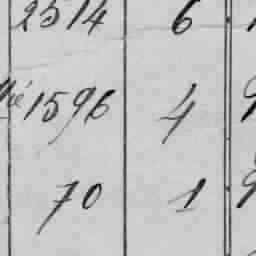 2514 6
1596 4
70 1